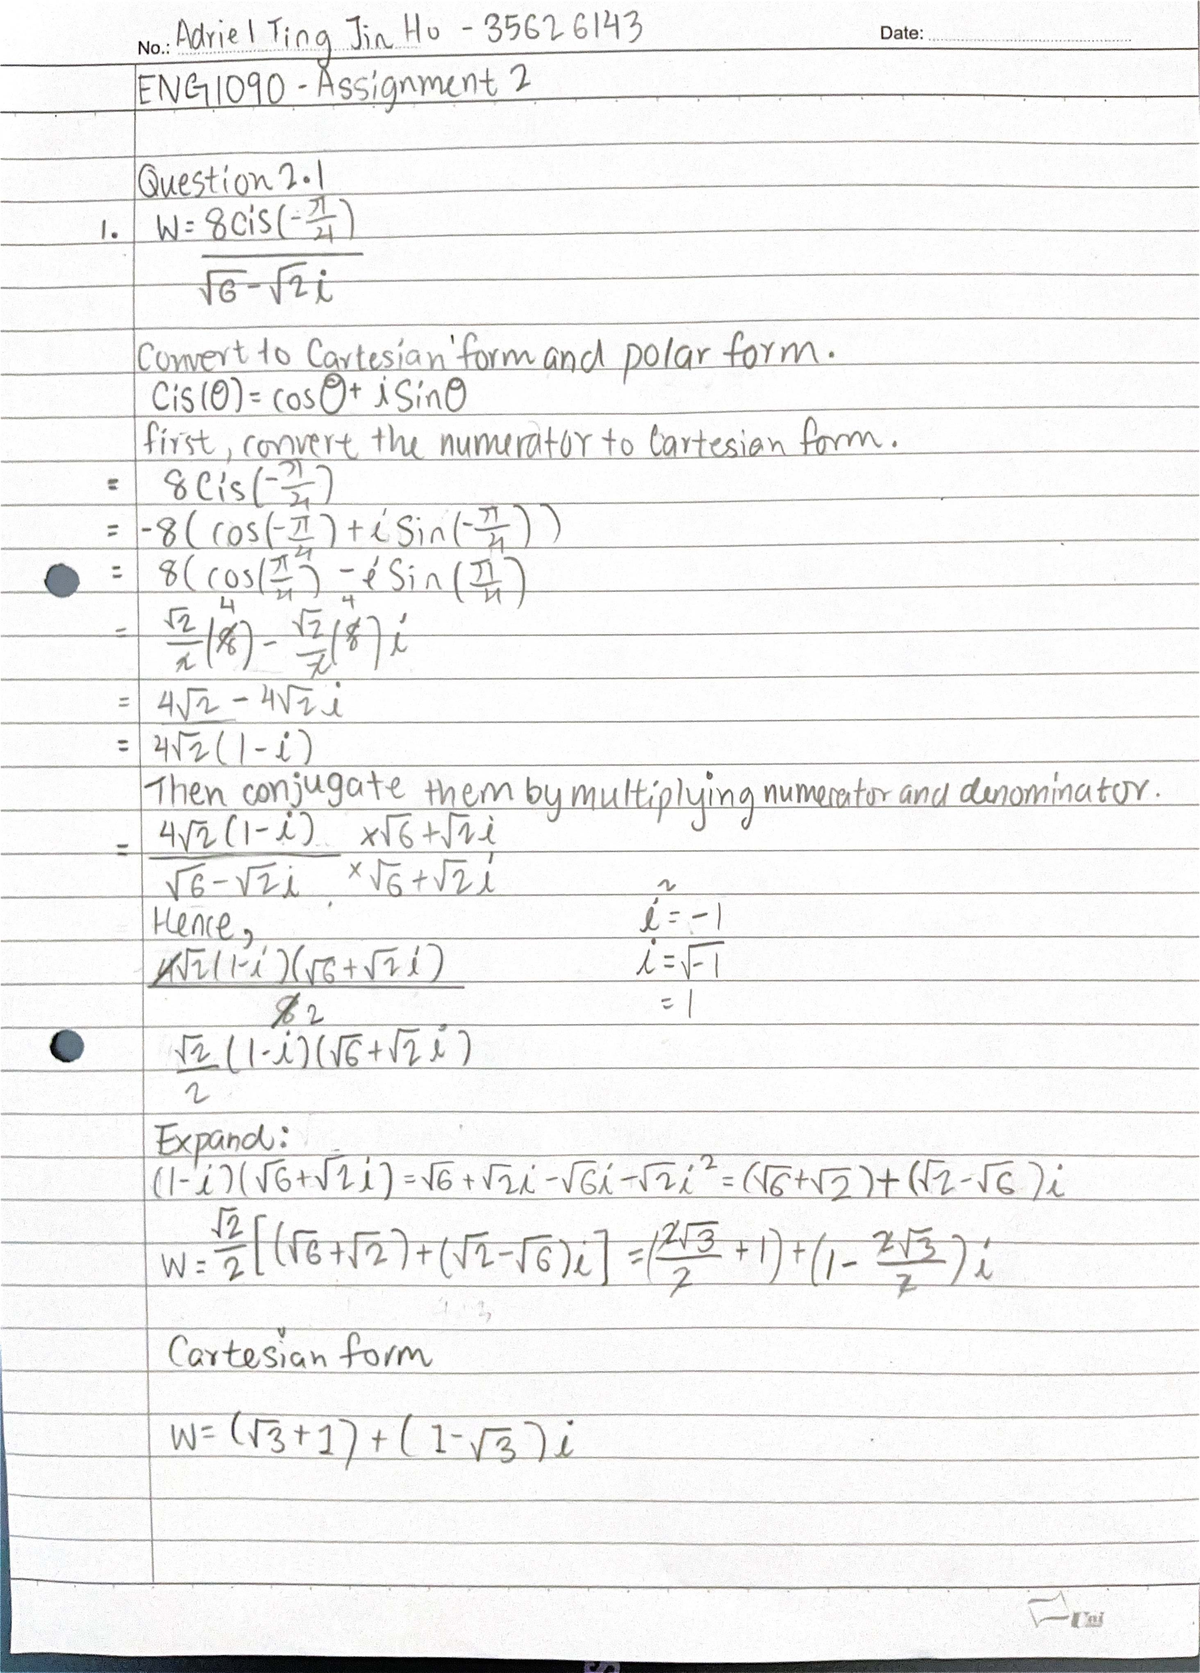 No.: Adriel Ting Jin Hu - 35626143 Date:
ENG1090 - Assignment 2
Question 2.1
1. W = 8cis(-π/4) / √6 - √2 i
Convert to Cartesian form and polar form.
Cis(θ) = cosθ + i Sinθ
first, convert the numerator to Cartesian form.
= 8Cis(-π/4)
= -8( cos(-π/4) + i Sin(-π/4))
= 8( cos(π/4) - i Sin(π/4)
= √2/2 (8) 4 - √2/2 (8) 4 i
= 4√2 - 4√2 i
= 4√2 (1 - i)
Then conjugate them by multiplying numerator and denominator.
= 4√2 (1 - i) x√6 + √2 i / √6 - √2 i x√6 + √2 i
Hence,
i² = -1
4√2 (1-i)(√6 + √2 i) / 8 2
i = √-1
= 1
√2/2 (1-i)(√6 + √2 i)
Expand:
(1-i)(√6+√2i) = √6 + √2i - √6i - √2i² = (√6+√2) + (√2-√6)i
W = √2/2 [(√6+√2) + (√2-√6)i] = (2√3/2 + 1) + (1 - 2√3/2) i
Cartesian form
W = (√3+1) + (1-√3) i
Uni